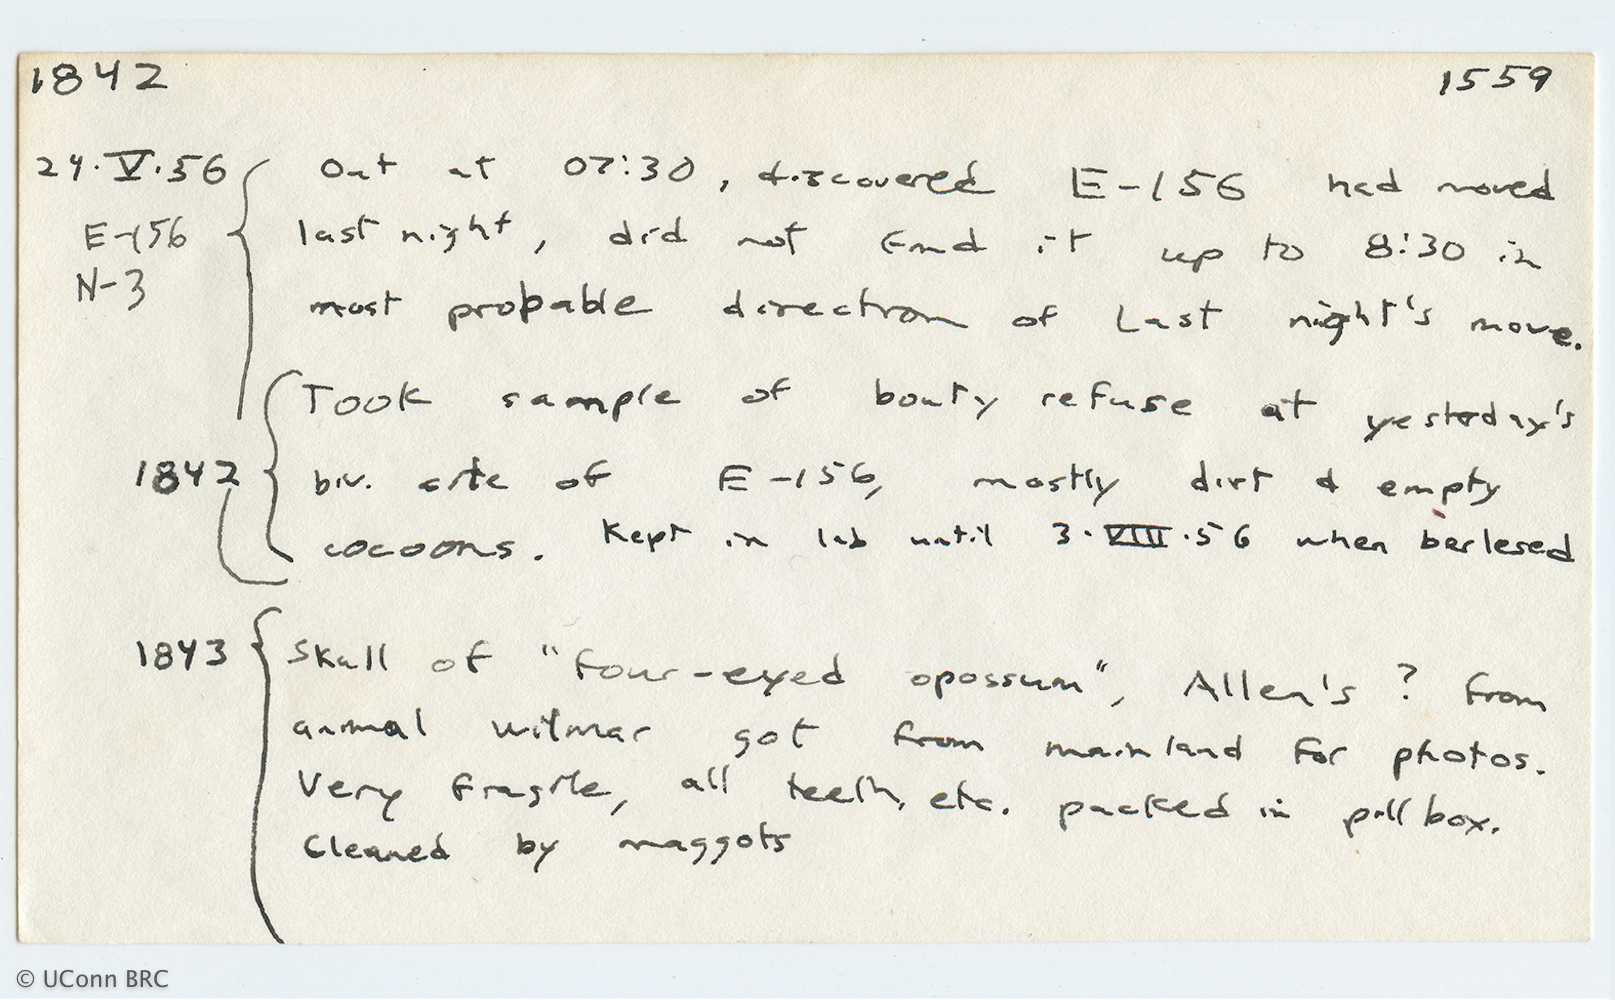 1842 1559
24·V·56 Out at 07:30, discovered E-156 had moved
E-156 last night, did not find it up to 8:30 in
N-3 most probable direction of last night's move.
Took sample of booty refuse at yesterday's
1842 biv. site of E-156, mostly dirt & empty
cocoons. Kept in lab until 3·VIII·56 when berlesed
1843 Skull of "four-eyed opossum", Allen's? from
animal Wilmar got from mainland for photos.
Very fragile, all teeth, etc. packed in pill box.
Cleaned by maggots
© UConn BRC